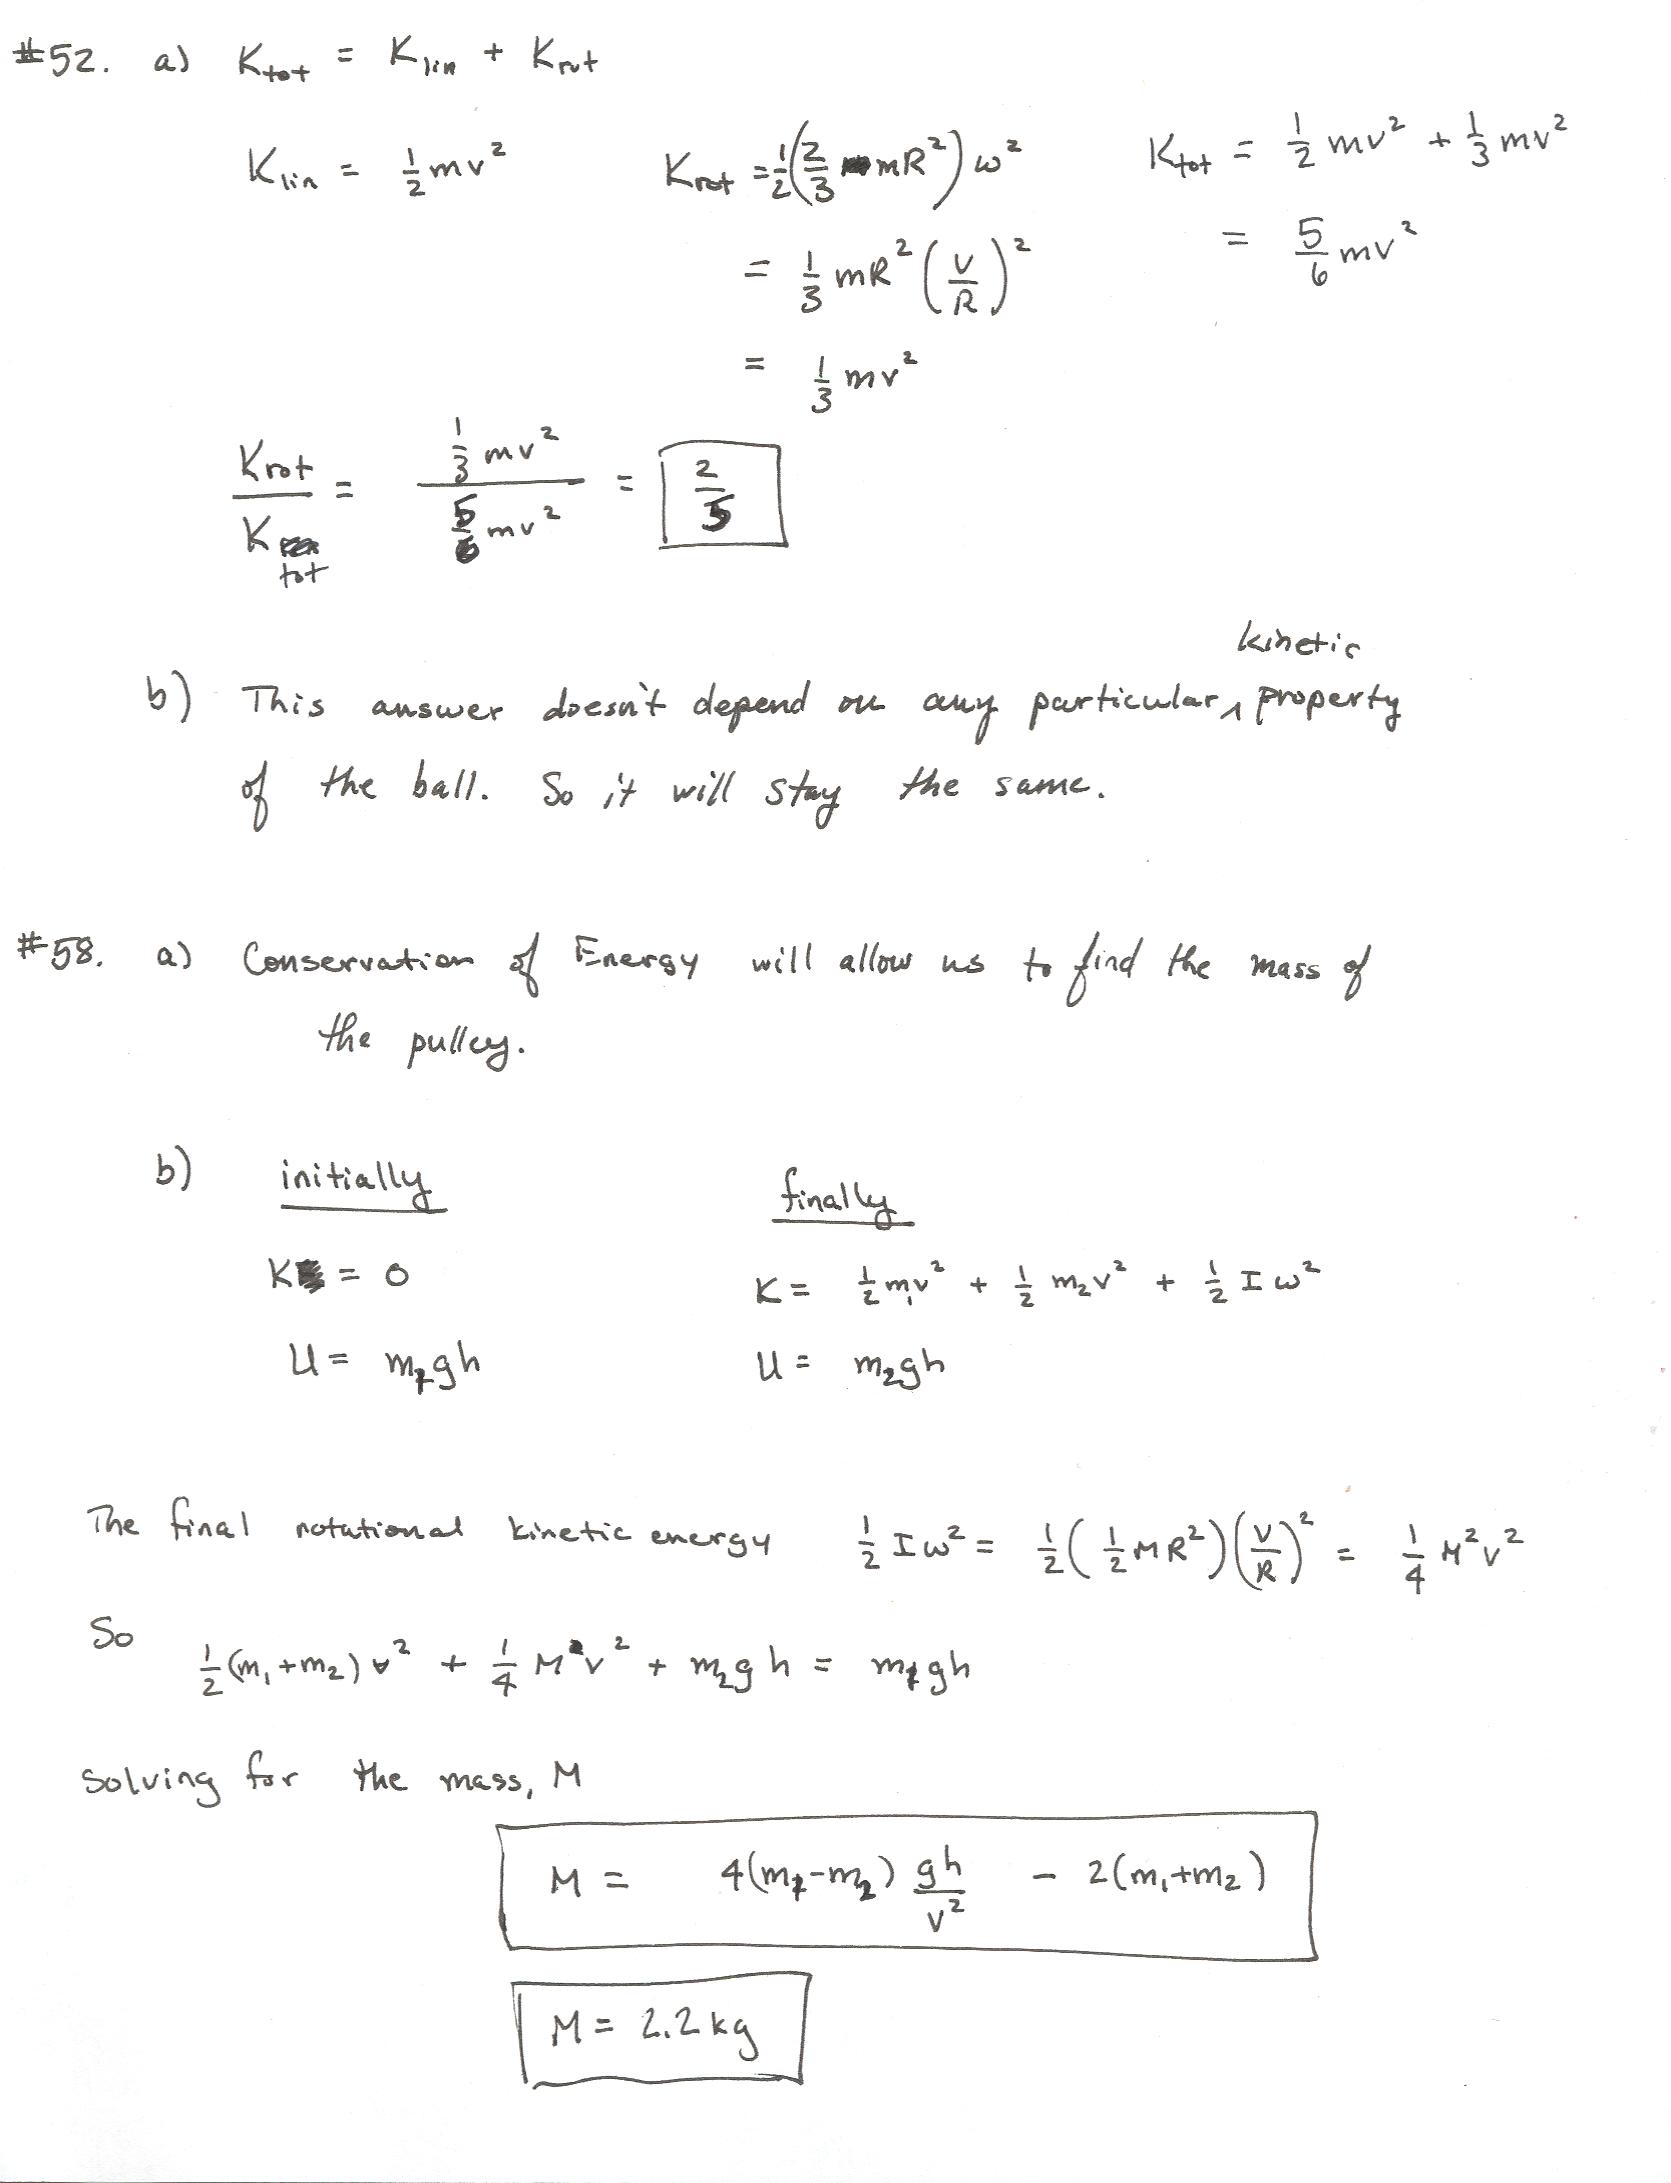 #52. a) K_tot = K_lin + K_rot
K_lin = 1/2 mv² K_rot = 1/2 (2/3 mR²) ω² K_tot = 1/2 mv² + 1/3 mv²
= 1/3 mR² (v/R)² = 5/6 mv²
= 1/3 mv²
K_rot / K_tot = 1/3 mv² / 5/6 mv² = 2/5
kinetic
b) This answer doesn't depend on any particular ^ property
of the ball. So it will stay the same.
#58. a) Conservation of Energy will allow us to find the mass of
the pulley.
b) initially finally
K = 0 K = 1/2 m₁v² + 1/2 m₂v² + 1/2 I ω²
U = m₁gh U = m₂gh
The final rotational kinetic energy 1/2 Iω² = 1/2 (1/2 MR²)(v/R)² = 1/4 M²v²
So
1/2 (m₁+m₂) v² + 1/4 M v² + m₂gh = m₁gh
solving for the mass, M
M = 4(m₁-m₂) gh/v² - 2(m₁+m₂)
M = 2.2 kg